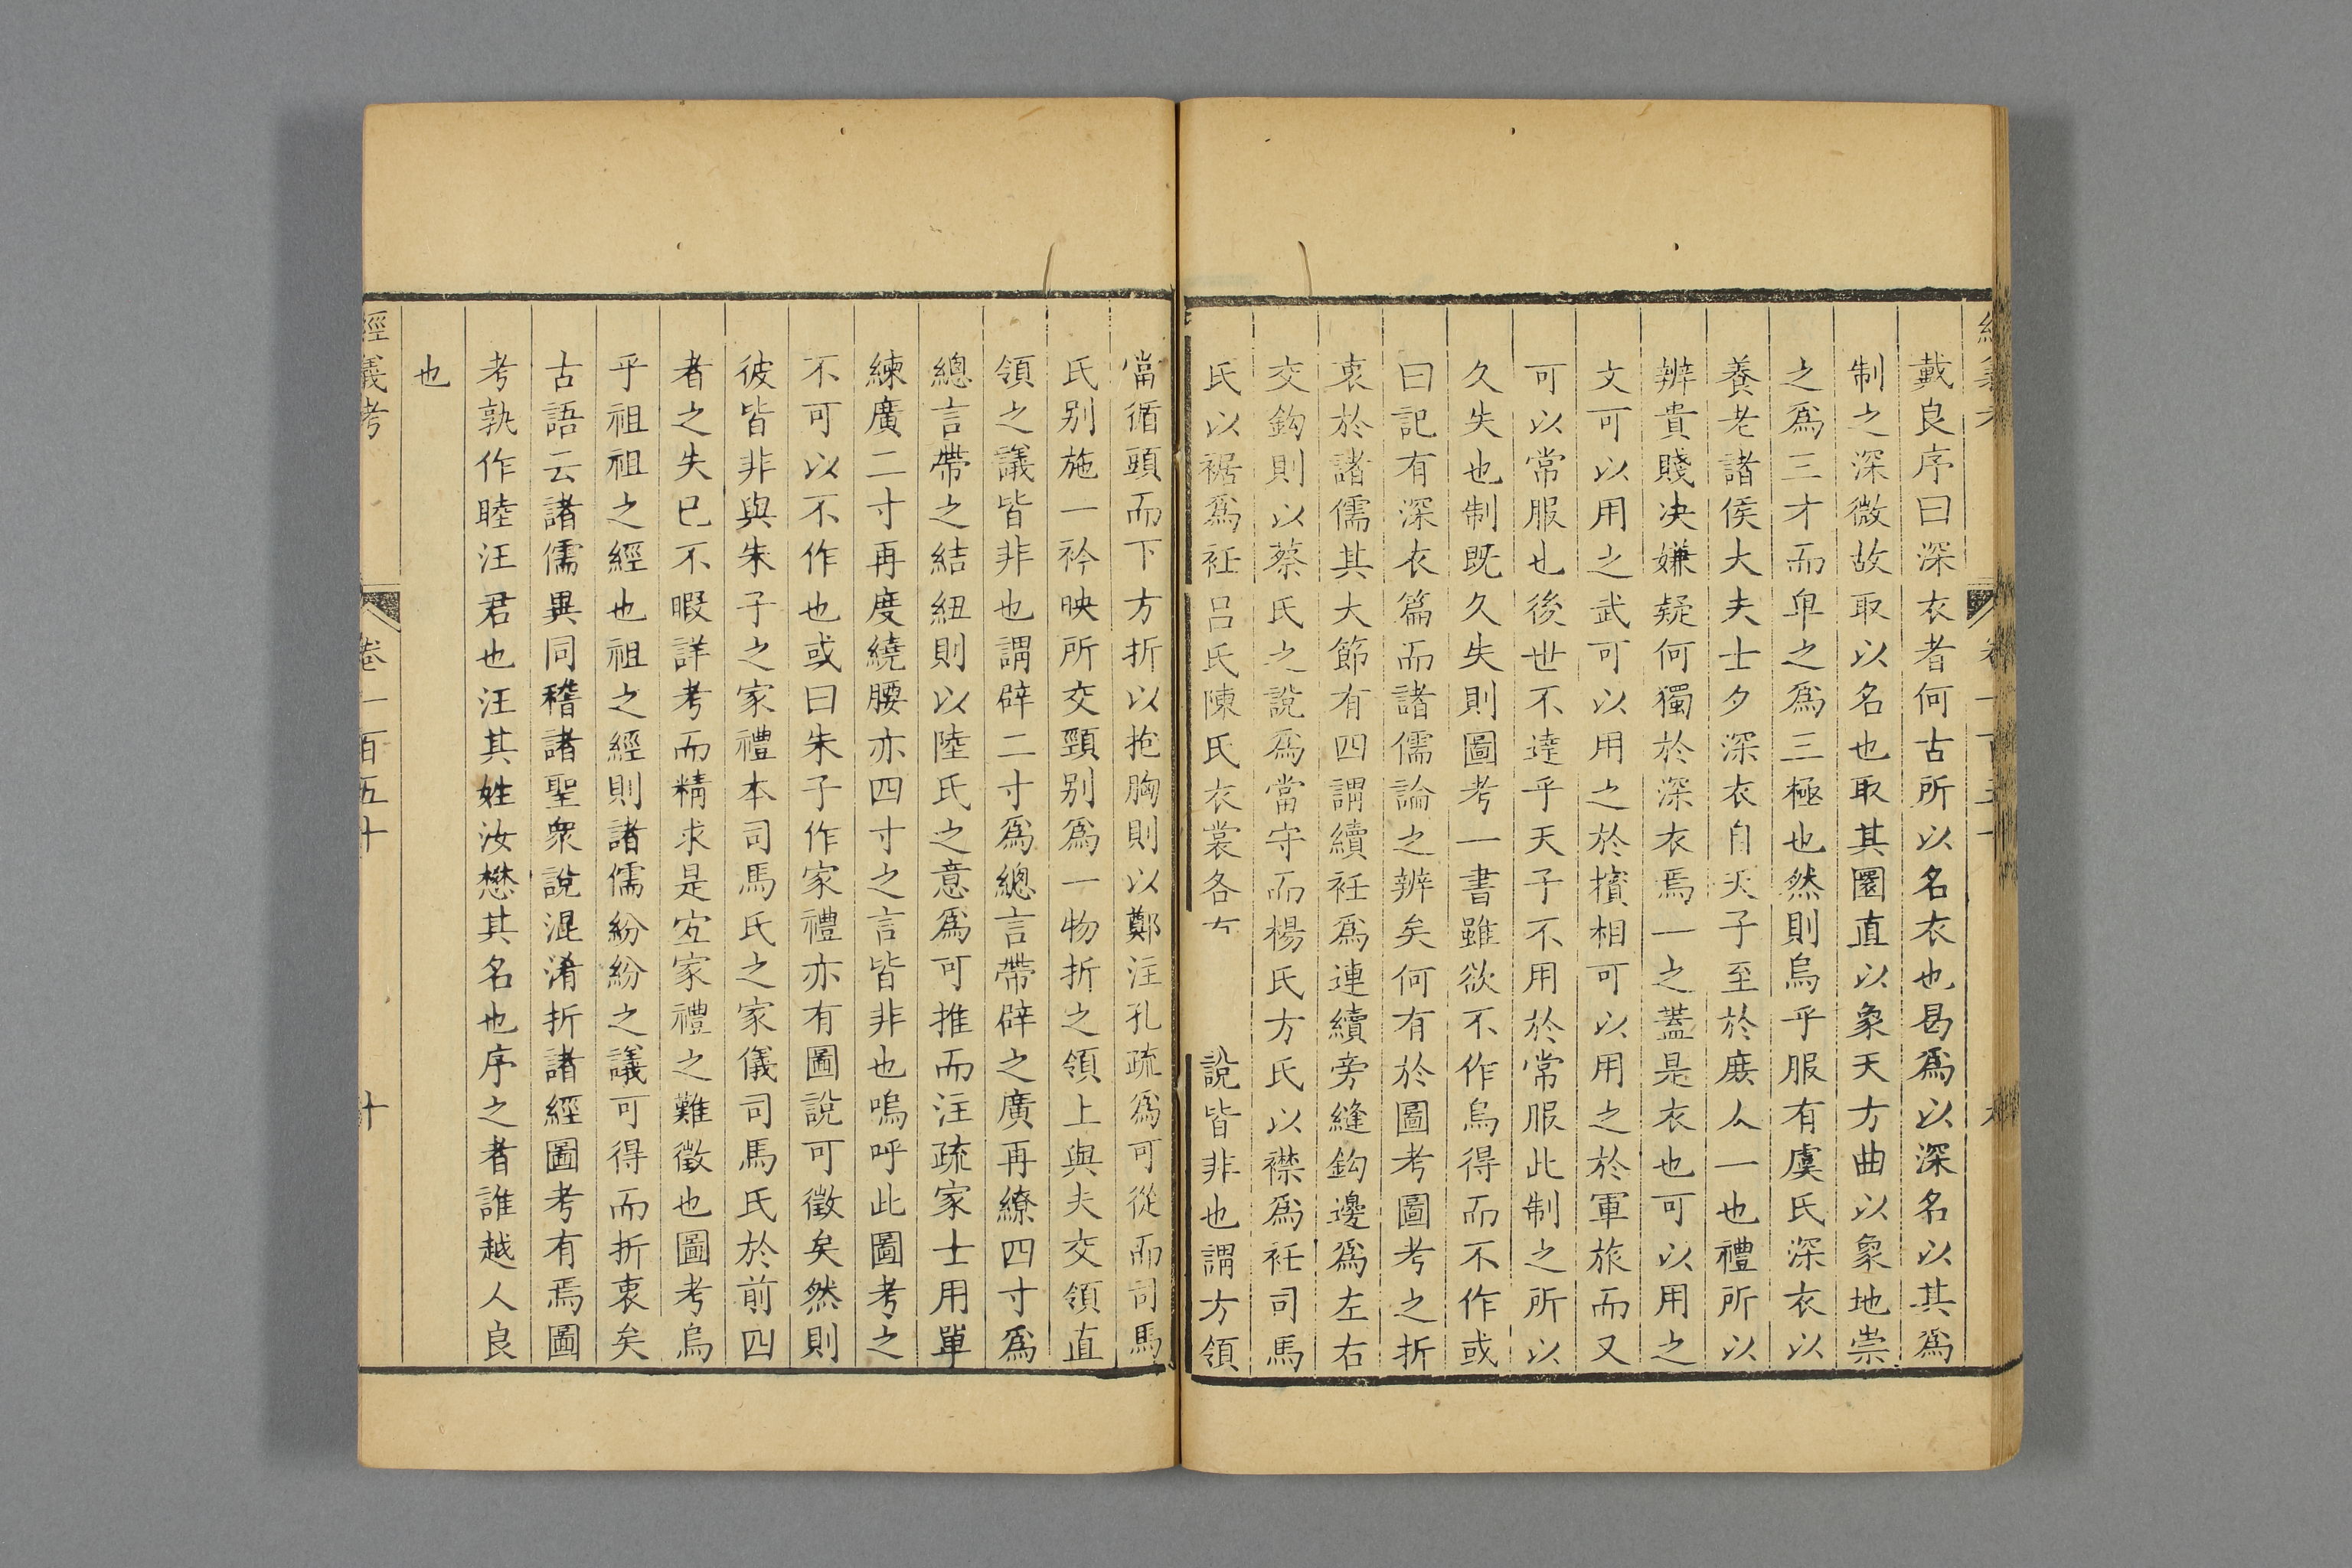 戴良序曰深衣者何古所以名衣也曷爲以深名以其爲
制之深微故取以名也取其圜直以象天方曲以象地崇
之爲三才而卑之爲三極也然則烏乎服有虞氏深衣以
養老諸侯大夫士夕深衣自天子至於庶人一也禮所以
辨貴賤决嫌疑何獨於深衣焉一之蓋是衣也可以用之
文可以用之武可以用之於擯相可以用之於軍旅而又
可以常服也後世不達乎天子不用於常服此制之所以
久失也制既久失則圖考一書雖欲不作烏得而不作或
曰記有深衣篇而諸儒論之辨矣何有於圖考圖考之折
衷於諸儒其大節有四謂續衽爲連續旁縫鈎邊爲左右
交鈎則以蔡氏之說爲當守而楊氏方氏以襟爲衽司馬
氏以裾爲衽呂氏陳氏衣裳各 說皆非也謂方領
當循頭而下方折以抱胸則以鄭注孔疏爲可從而司馬
氏别施一衿映所交頸别爲一物折之領上與夫交領直
領之議皆非也謂辟二寸爲總言帶辟之廣再繚四寸爲
總言帶之結紐則以陸氏之意爲可推而注疏家士用單
練廣二寸再度繞腰亦四寸之言皆非也嗚呼此圖考之
不可以不作也或曰朱子作家禮亦有圖說可徵矣然則
彼皆非與朱子之家禮本司馬氏之家儀司馬氏於前四
者之失已不暇詳考而精求是宐家禮之難徵也圖考烏
乎祖祖之經也祖之經則諸儒紛紛之議可得而折衷矣
古語云諸儒異同稽諸聖衆說混淆折諸經圖考有焉圖
考孰作睦汪君也汪其姓汝懋其名也序之者誰越人良
也
經義考
卷一百五十
十